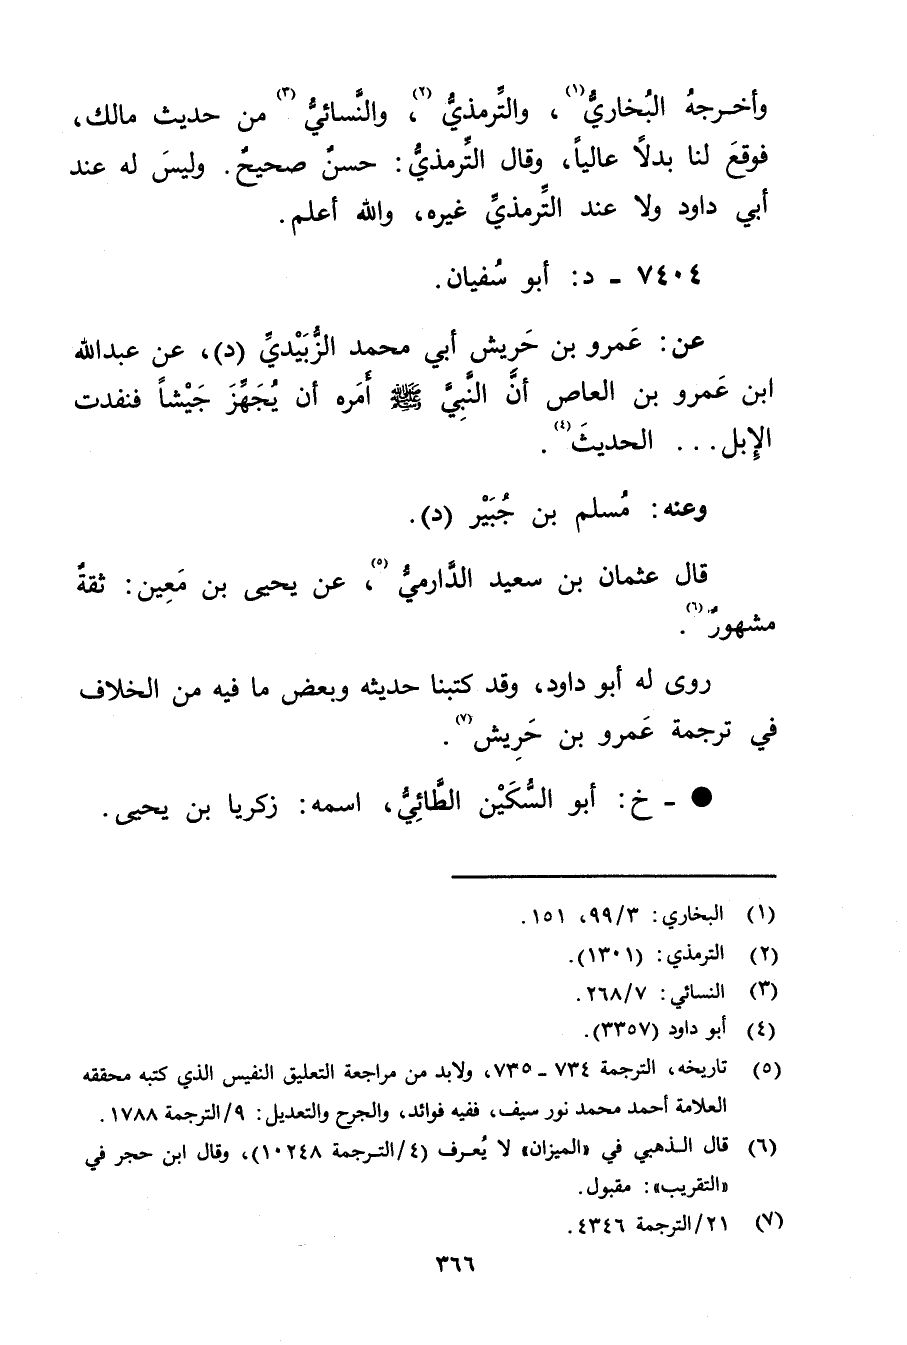 وأخـرجهُ البُخاريُّ(١)، والتِّرمذيُّ(٢)، والنَّسائيُّ(٣) من حديث مالك،
فوقعَ لنا بدلًا عالياً، وقال التِّرمذيُّ: حسنٌ صحيحٌ. وليسَ له عند
أبي داود ولا عند التِّرمذيِّ غيره، والله أعلم.
٧٤٠٤ ـ د: أبو سُفيان.
عن: عَمرو بن حَرِيش أبي محمد الزُّبَيْديِّ (د)، عن عبدالله
ابن عَمرو بن العاص أنَّ النَّبِيَّ ﷺ أَمَره أن يُجَهِّزَ جَيْشاً فنفدت
الإِبل... الحديثَ(٤).
وعنه: مُسلم بن جُبَيْر (د).
قال عثمان بن سعيد الدَّارميُّ(٥)، عن يحيى بن مَعِين: ثقةٌ
مشهورٌ(٦).
روى له أبو داود، وقد كتبنا حديثه وبعض ما فيه من الخلاف
في ترجمة عَمرو بن حَرِيش(٧).
● ـ خ: أبو السُّكَيْن الطَّائِيُّ، اسمه: زكريا بن يحيى.
(١) البخاري: ٩٩/٣، ١٥١.
(٢) الترمذي: (١٣٠١).
(٣) النسائي: ٢٦٨/٧.
(٤) أبو داود (٣٣٥٧).
(٥) تاريخه، الترجمة ٧٣٤ ـ ٧٣٥، ولابد من مراجعة التعليق النفيس الذي كتبه محققه
العلامة أحمد محمد نور سيف، ففيه فوائد، والجرح والتعديل: ٩/الترجمة ١٧٨٨.
(٦) قال الـذهبي في «الميزان» لا يُعـرف (٤/التـرجمة ١٠٢٤٨)، وقال ابن حجر في
«التقريب»: مقبول.
(٧) ٢١/الترجمة ٤٣٤٦.
٣٦٦